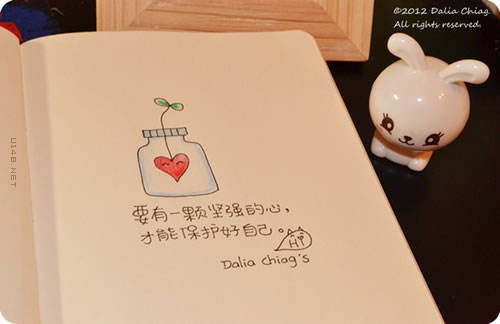 ©2012 Dalia Chiag.
All rights reserved.
U148.NET
要有一颗坚强的心，
才能保护好自己。
Hi
Dalia Chiag's